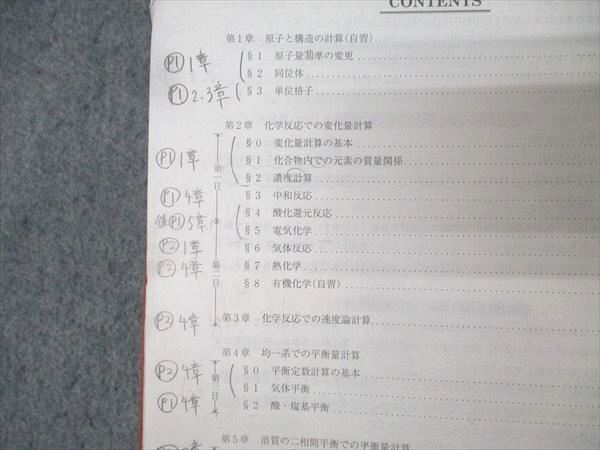 CONTENTS
第1章 原子と構造の計算(自習)
P1 1章 §1 原子量基準の変更
§2 同位体
P1 2.3章 §3 単位格子
第2章 化学反応での変化量計算
§0 変化量計算の基本
P1 1章 §1 化合物内での元素の質量関係
第一日 §2 濃度計算
P1 4章 §3 中和反応
後P1 5章 §4 酸化還元反応
§5 電気化学
P2 1章 §6 気体反応
P2 4章 第二日 §7 熱化学
§8 有機化学(自習)
P2 4章 第3章 化学反応での速度論計算
第4章 均一系での平衡量計算
P2 4章 §0 平衡定数計算の基本
第三日 §1 気体平衡
P1 4章 §2 酸・塩基平衡
第5章 溶質の二相間平衡での平衡量計算